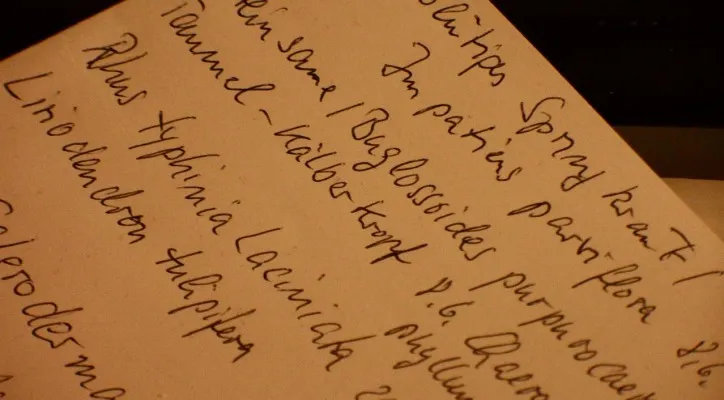 blütiges Springkraut/
Impatiens parviflora 8.6.
einsame / Buglossoides purpurocaer
Taumel-Kälberkropf 8.6. Chaero
phyllum
Rhus typhinia Laciniata
Liriodendron tulipifera
cleroderma